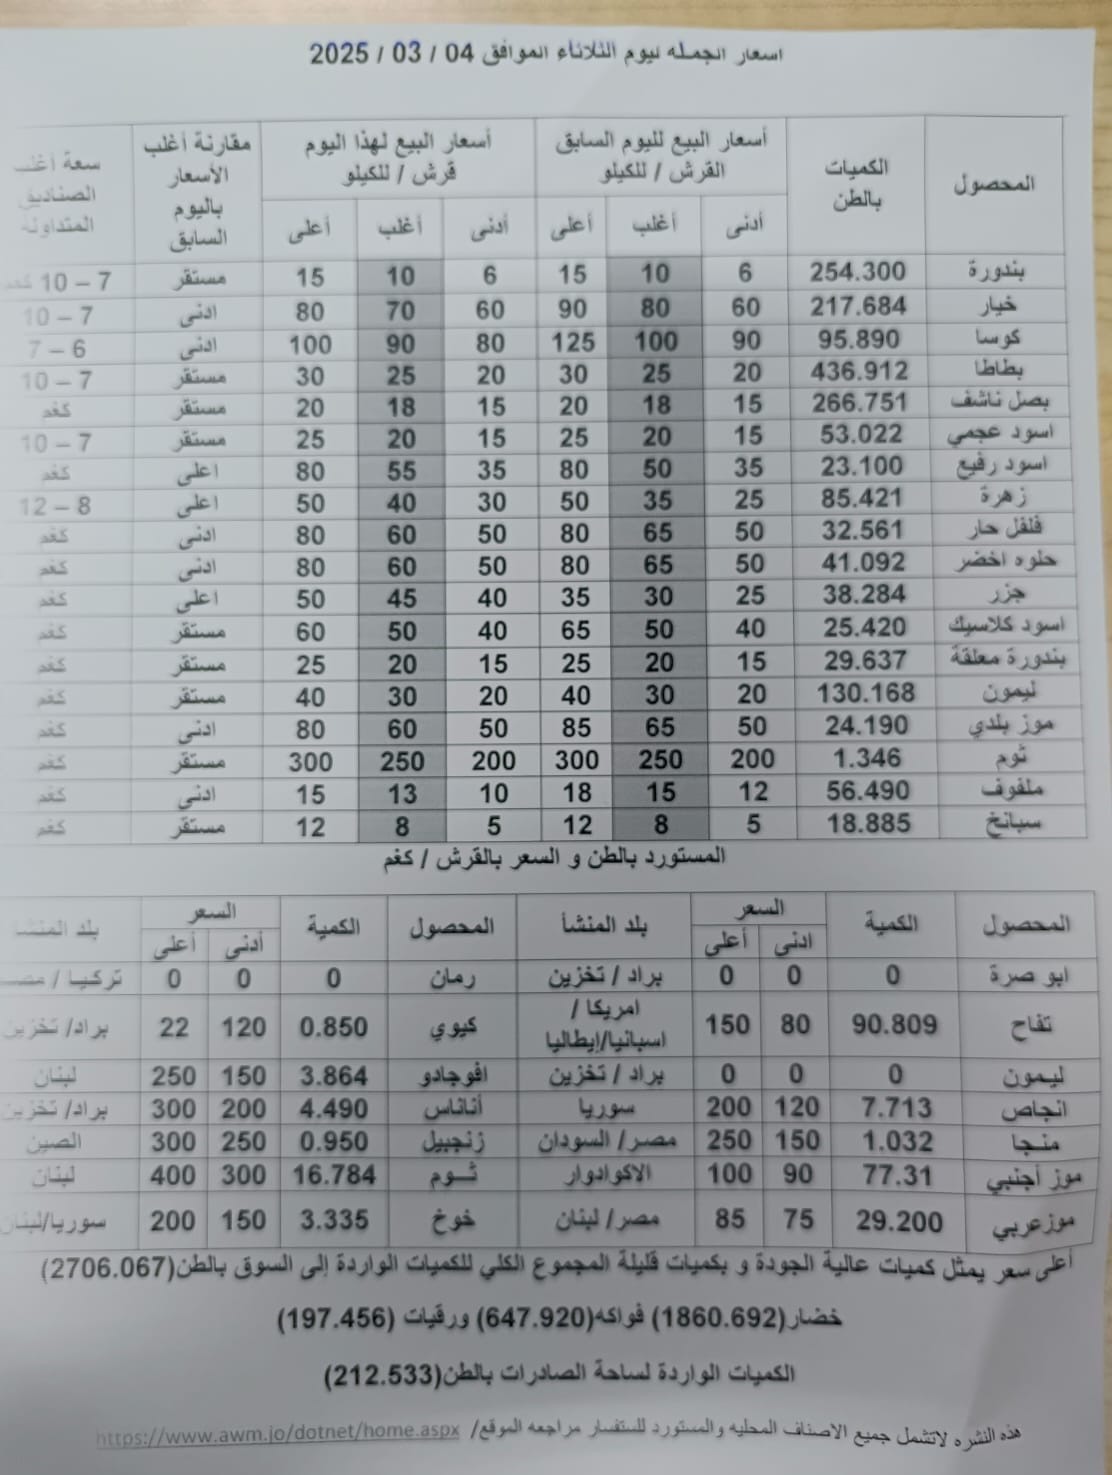 اسعار الجمله ليوم الثلاثاء الموافق 04 / 03 / 2025
المحصول الكميات بالطن أسعار البيع لليوم السابق القرش / للكيلو أسعار البيع لهذا اليوم قرش / للكيلو مقارنة أغلب الأسعار باليوم السابق سعة أغلب الصناديق المتداولة
أدنى أغلب أعلى أدنى أغلب أعلى
بندورة 254.300 6 10 15 6 10 15 مستقر 7 – 10
خيار 217.684 60 80 90 60 70 80 ادنى 7 – 10
كوسا 95.890 90 100 125 80 90 100 ادنى 6 – 7
بطاطا 436.912 20 25 30 20 25 30 مستقر 7 – 10
بصل ناشف 266.751 15 18 20 15 18 20 مستقر كغم
اسود عجمي 53.022 15 20 25 15 20 25 مستقر 7 – 10
اسود رفيع 23.100 35 50 80 35 55 80 اعلى كغم
زهرة 85.421 25 35 50 30 40 50 اعلى 8 – 12
فلفل حار 32.561 50 65 80 50 60 80 ادنى كغم
حلوه اخضر 41.092 50 65 80 50 60 80 ادنى كغم
جزر 38.284 25 30 35 40 45 50 اعلى كغم
اسود كلاسيك 25.420 40 50 65 40 50 60 مستقر كغم
بندورة معلقة 29.637 15 20 25 15 20 25 مستقر كغم
ليمون 130.168 20 30 40 20 30 40 مستقر كغم
موز بلدي 24.190 50 65 85 50 60 80 ادنى كغم
ثوم 1.346 200 250 300 200 250 300 مستقر كغم
ملفوف 56.490 12 15 18 10 13 15 ادني كغم
سبانخ 18.885 5 8 12 5 8 12 مستقر كغم
المستورد بالطن و السعر بالقرش / كغم
المحصول الكمية السعر بلد المنشأ المحصول الكمية السعر بلد المنشأ
ادنى أعلى أدنى أعلى
ابو صرة 0 0 0 براد / تخزين رمان 0 0 0 تركيا /
تفاح 90.809 80 150 امريكا / اسبانيا/إيطاليا كيوي 0.850 120 22 براد/ تخزين
ليمون 0 0 0 براد / تخزين افوجادو 3.864 150 250 لبنان
انجاص 7.713 120 200 سوريا أناناس 4.490 200 300 براد/ تخزين
منجا 1.032 150 250 مصر/ السودان زنجبيل 0.950 250 300 الصين
موز أجنبي 77.31 90 100 الاكوادوار ثــوم 16.784 300 400 لبنان
موزعربي 29.200 75 85 مصر/ لبنان خوخ 3.335 150 200 سوريا/لبنان
أعلى سعر يمثل كميات عالية الجودة و بكميات قليلة المجموع الكلي للكميات الواردة إلى السوق بالطن(2706.067)
خضار(1860.692) فواكه(647.920) ورقيات (197.456)
الكميات الواردة لساحة الصادرات بالطن(212.533)
هذه النشره لاتشمل جميع الاصناف المحليه والمستورد للستفسار مراجعه الموقع/ https://www.awm.jo/dotnet/home.aspx